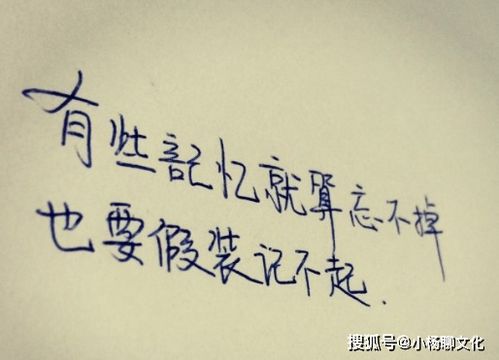 有些記忆就算忘不掉
也要假装记不起.
搜狐号@小杨聊文化